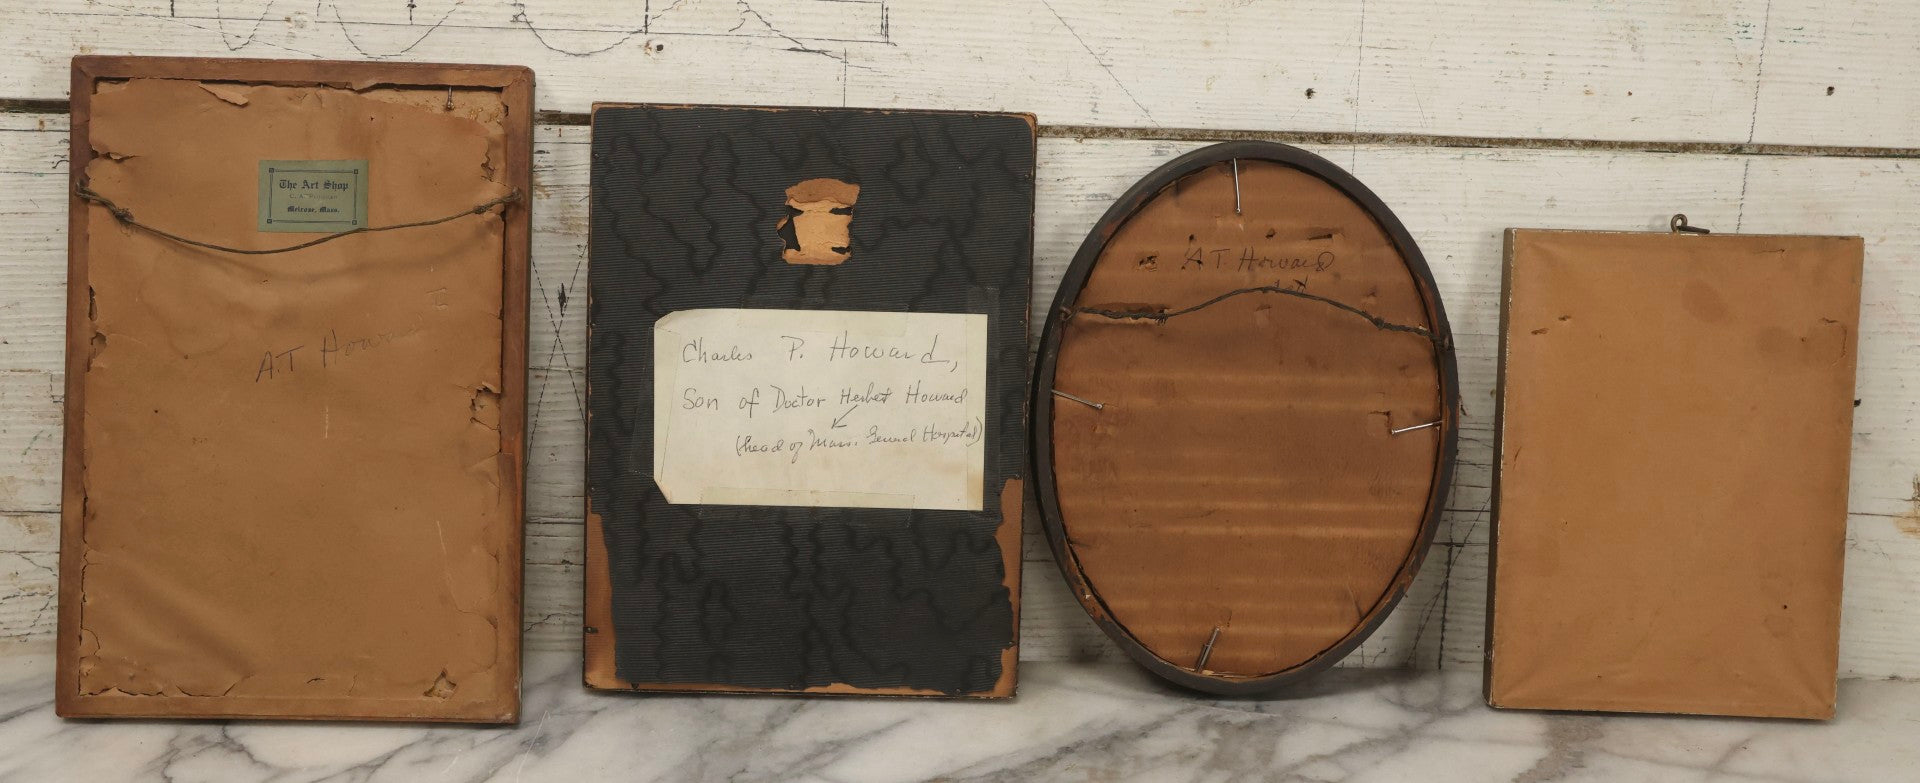 The Art Shop
Melrose, Mass.
A.T Howard
Charles P. Howard,
Son of Doctor Herbert Howard
(head of Mass. General Hospital)
A T. Howard